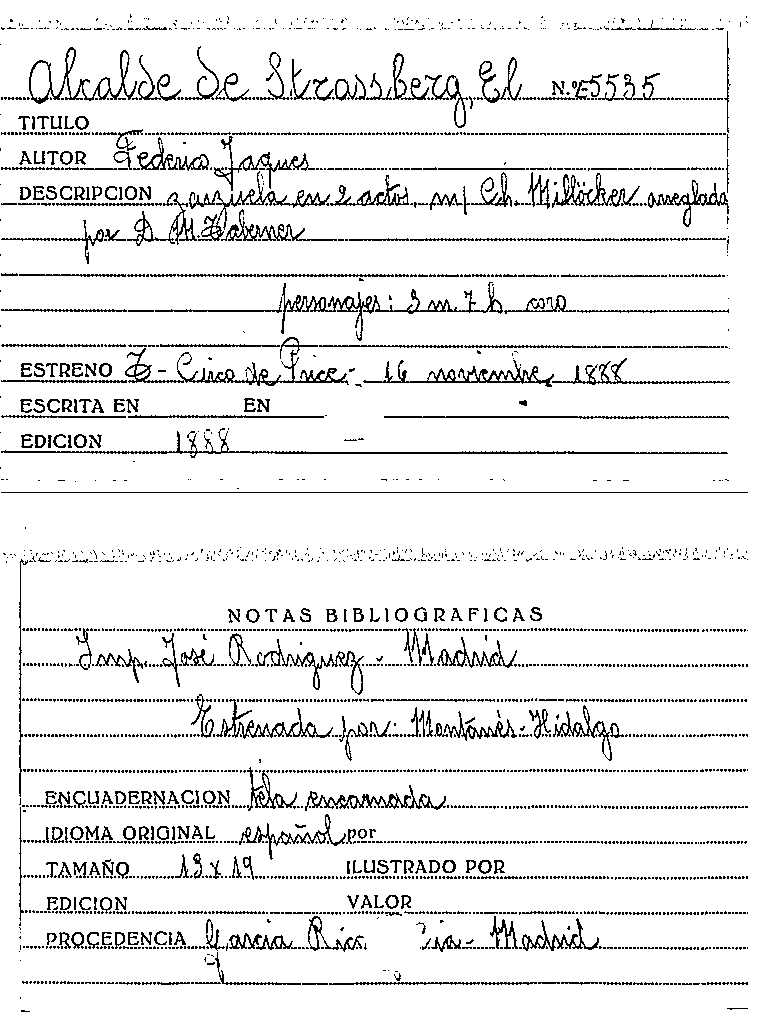 Alcalde de Strassberg, El N.º E5535
TITULO
AUTOR Federico Jaques
DESCRIPCION zarzuela en 2 actos, m/ Ch. Millöcker arreglada
por D. M. Taberner
personajes: 3 m. 7 h. coro
ESTRENO T- Circo de Price- 16 noviembre, 1888
ESCRITA EN EN
EDICION 1888 —
NOTAS BIBLIOGRAFICAS
Imp. José Rodriguez - Madrid
Estrenada por: Montañés-Hidalgo
ENCUADERNACION tela encarnada
IDIOMA ORIGINAL español por
TAMAÑO 13 x 19 ILUSTRADO POR
EDICION VALOR
PROCEDENCIA Garcia Rico Cia- Madrid